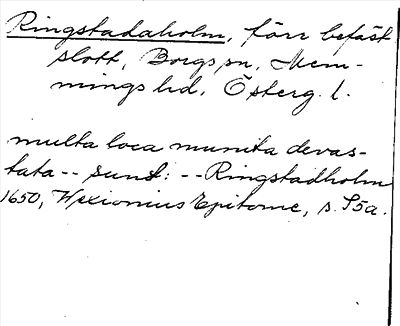 Ringstadaholm, förr befäst
slott, Borgs sn, Mem-
mings hd, Österg. l.
multa loca munita devas-
tata -- sunt: -- Ringstadholm
1650, Wexionius Epitome, s. S5a.